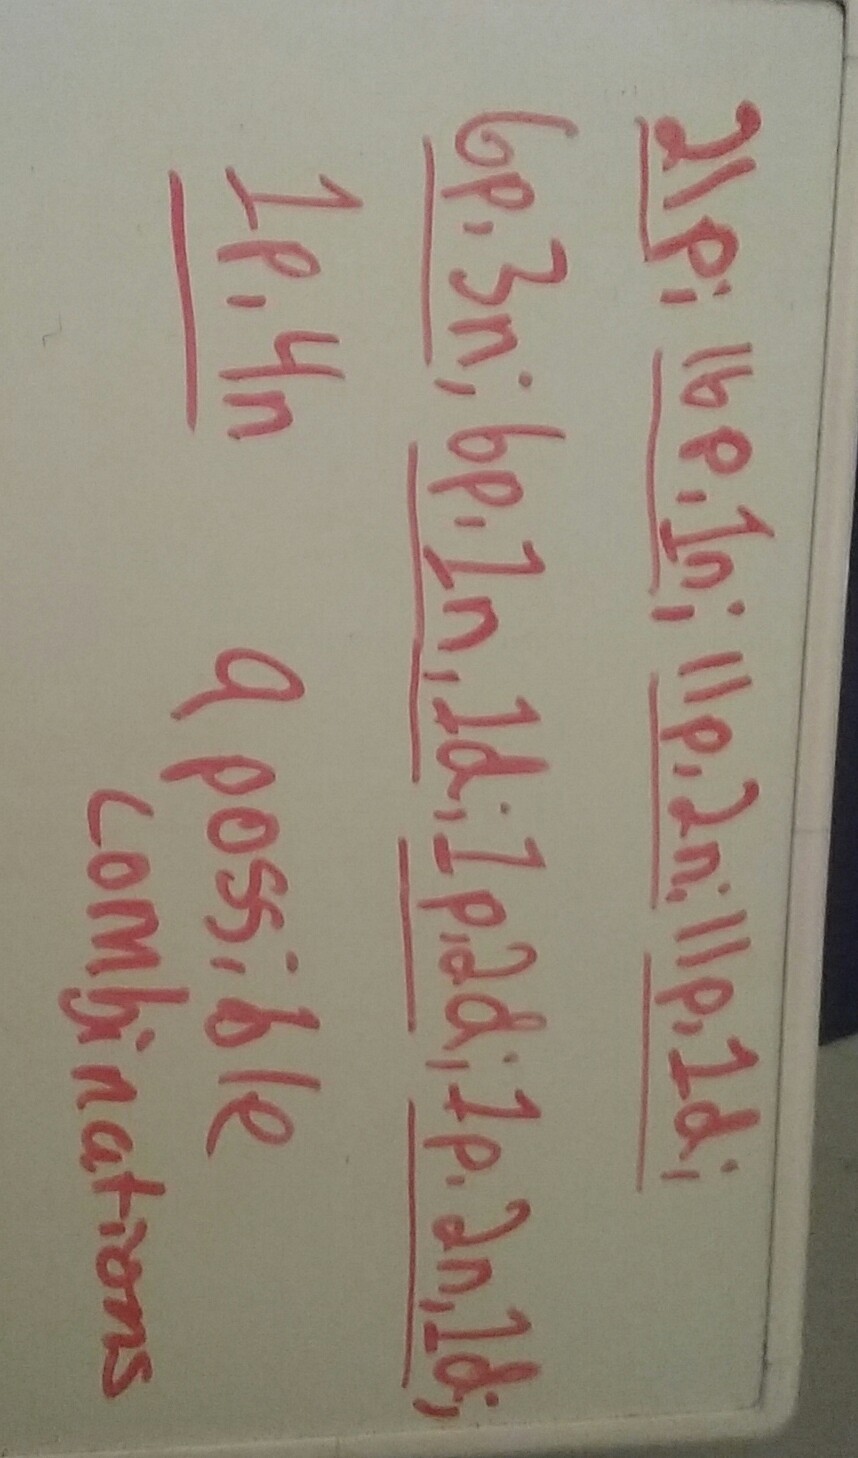 21p; 16p, 1n; 11p, 2n; 11p, 1d;
6p, 3n; 6p, 1n, 1d; 1p, 2d; 1p, 2n, 1d;
1p, 4n 9 possible
combinations